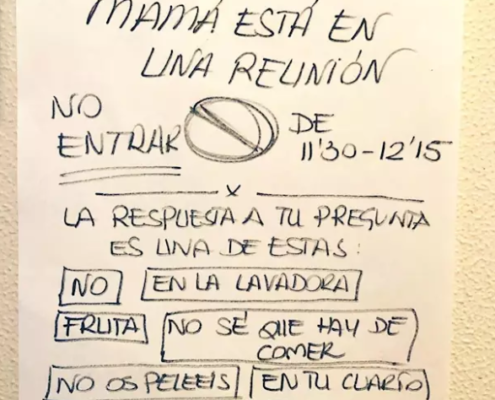 MAMÁ ESTÁ EN
UNA REUNIÓN
NO
ENTRAR
DE
11'30-12'15
x
LA RESPUESTA A TU PREGUNTA
ES UNA DE ESTAS:
NO EN LA LAVADORA
FRUTA NO SÉ QUE HAY DE
COMER
NO OS PELEEIS EN TU CUARTO